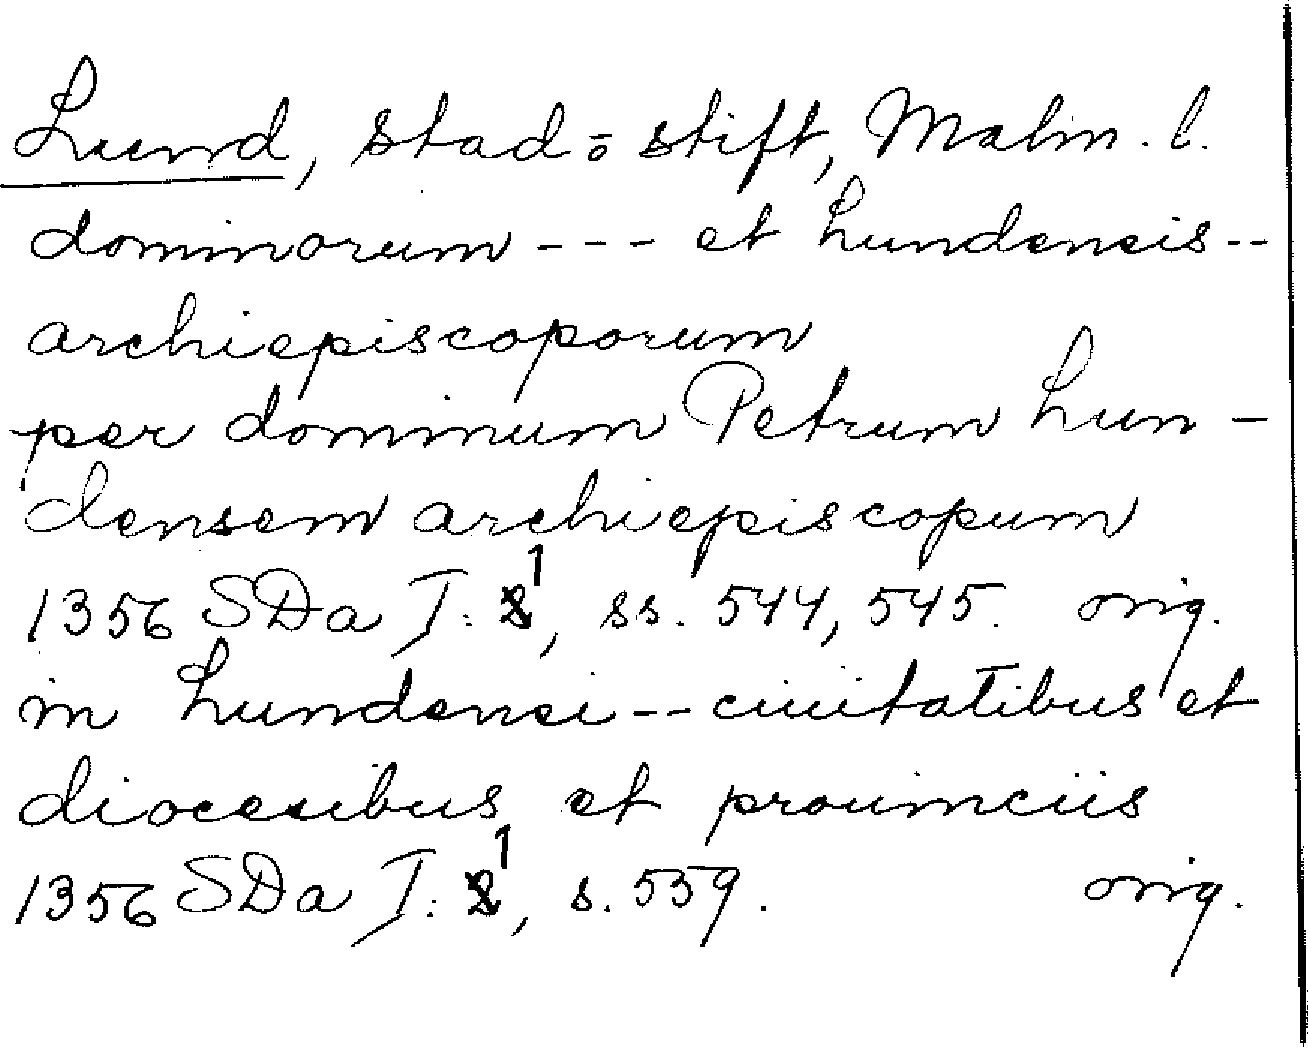 Lund, stad o stift, Malm. l.
dominorum --- et Lundensis --
archiepiscoporum
per dominum Petrum Lun-
densem archiepiscopum
1356 SDa I: 1, ss. 544, 545. orig.
in Lundensi -- ciuitatibus et
diocesibus et prouinciis
1356 SDa I: 1, s. 539. orig.